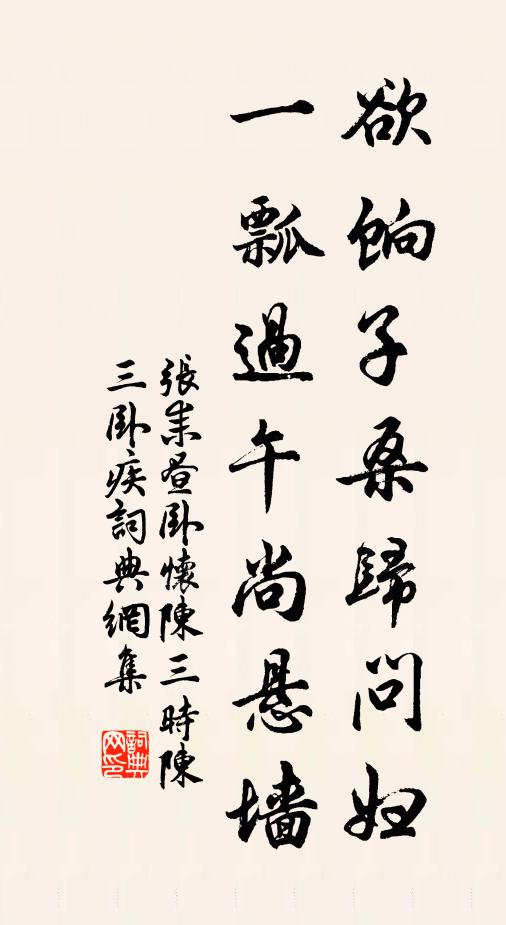 欲餉子桑歸問妇
一瓢過午尚悬墙
張耒昼卧懷陳三時陳
三卧疾詞典網集
詞典网印